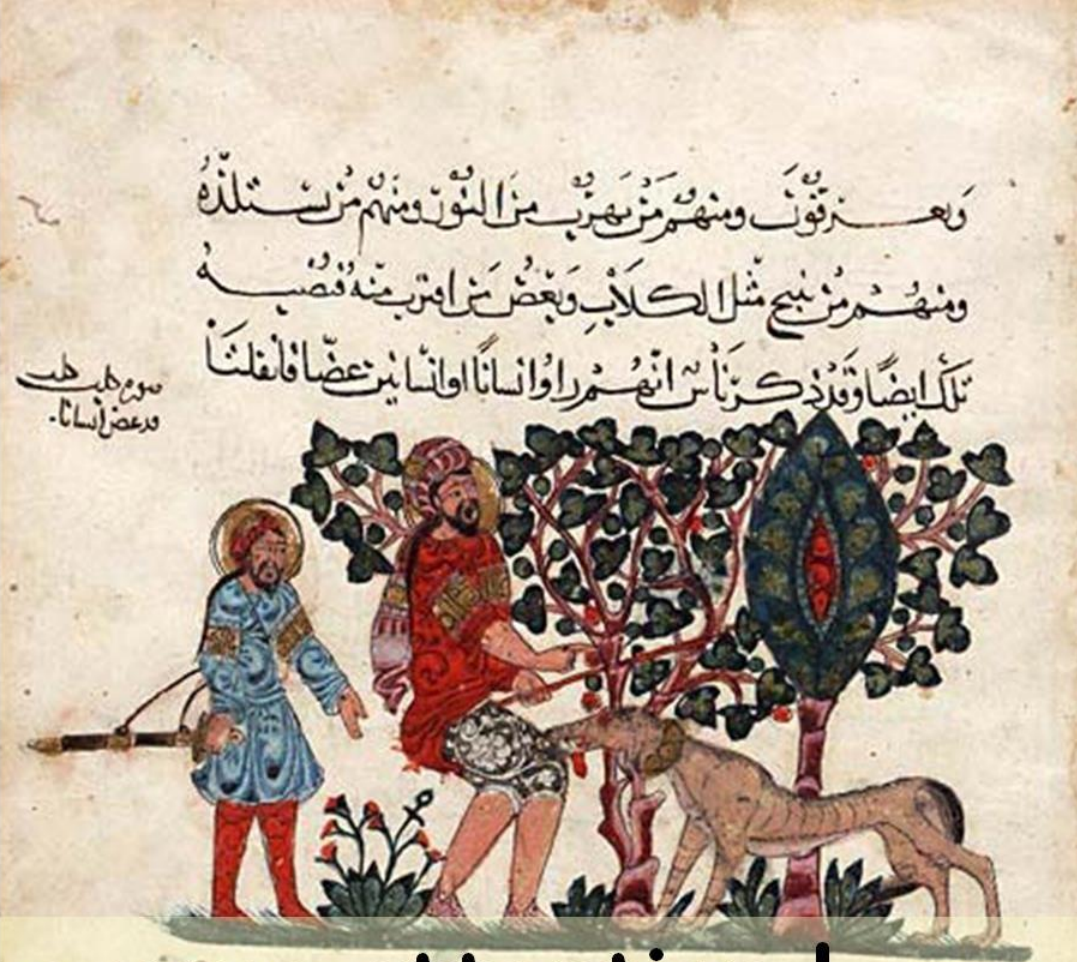 ويعرقون ومنهم من يهرب من النور ومنهم من يستلذه
ومنهم من ينبح مثل الكلاب ويعض من اقترب منه فتصيبه
تلك ايضًا وقد ذكر ناس انهم راوا انسانًا او انسانين عضّا فانفلتا
صورة كلب كلب
قد عض انسانا